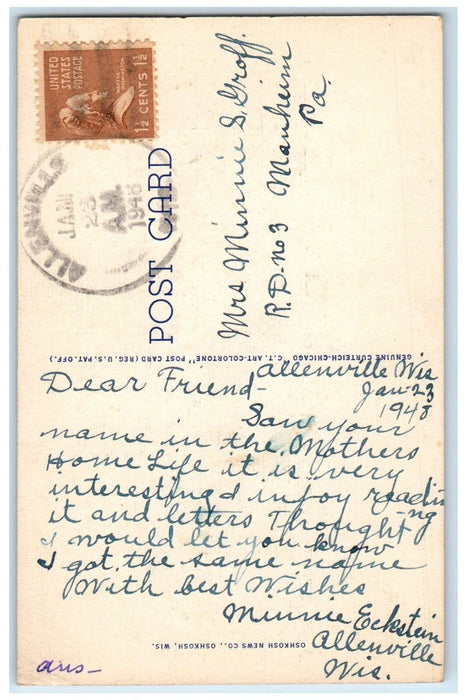 UNITED
STATES
POSTAGE
MARTHA
WASHINGTON
1½ CENTS 1½
ALLENVILLE
JAN
23
A.M.
1948
WIS.
POST CARD
Mrs Minnie S. Groff.
R.D-no 3 Manheim
Pa.
GENUINE CURTEICH-CHICAGO "C.T. ART-COLORTONE" POST CARD (REG. U.S. PAT. OFF.)
Allenville Wis
Jan-23
1948
Dear Friend-
Saw your
name in the Mothers
Home Life it is very
interesting I injoy readin
-ng
it and letters Thought
I would let you know
I got the same name
With best Wishes
Minnie Eckstein
Allenville
Wis.
OSHKOSH NEWS CO., OSHKOSH, WIS.
ans-